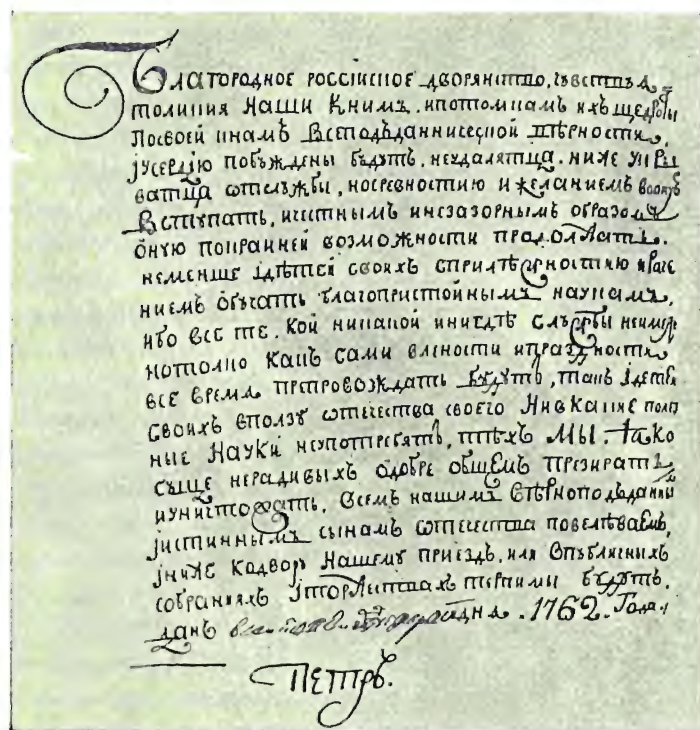 Благородное россіиское дворянство, чувствуя
толикия Наши Книмъ. ипотомкамъ ихъ щедроты
Посвоей кнамъ Всеподъданнической вѣрности,
јусердію побуждены будутъ, неудалятца. ниже укры
ватца ѿтслужбы, носревностию и желаниемъ воону
Вступать, ичестнымъ инезазорнымъ образомъ
Оную покрайней возможности продолжать.
неменше ідѣтей своихъ сприлѣжностию ираче
ниемъ обучать благопристойнымъ наукамъ,
ибо все те. кой никакой инигдѣ службы неимели
нотолко какъ сами влености ипраздности
все время препровождать будутъ, такъ ідетей
своихъ вползу ѿтечества своего Нивкакие полез
ные Науки неупотребятъ, тѣхъ МЫ. Яко
суще нерадивыхъ одобре общемъ презирать
иуничтожать, всемъ нашимъ вѣрноподъданны
јистиннымъ сынамъ ѿтечества повелѣваемъ,
јниже кодвору Нашему приездъ, или впубличныхъ
собранияхъ јторжествахъ терпимы будутъ,
данъ 1762. Года
ПЕТРЪ.